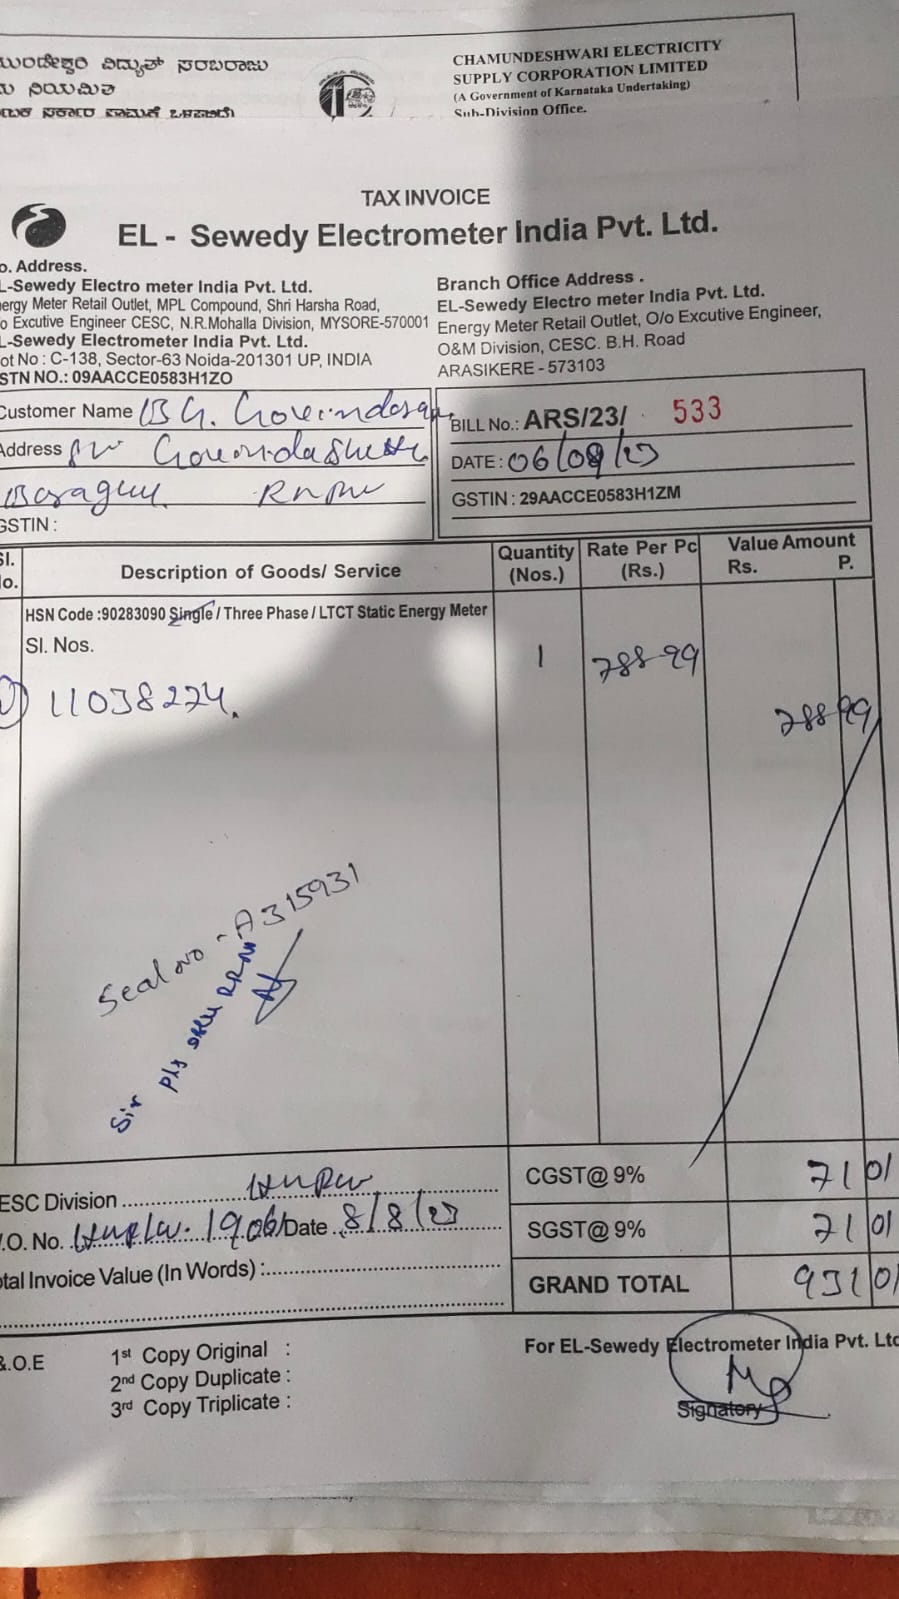 ವಿದ್ಯುತ್ ಸರಬರಾಜು
ನಿಯಮಿತ
CHAMUNDESHWARI ELECTRICITY
SUPPLY CORPORATION LIMITED
(A Government of Karnataka Undertaking)
Sub-Division Office.
TAX INVOICE
EL - Sewedy Electrometer India Pvt. Ltd.
o. Address.
L-Sewedy Electro meter India Pvt. Ltd.
nergy Meter Retail Outlet, MPL Compound, Shri Harsha Road,
o Excutive Engineer CESC, N.R.Mohalla Division, MYSORE-570001
L-Sewedy Electro meter India Pvt. Ltd.
ot No : C-138, Sector-63 Noida-201301 UP, INDIA
STN NO.: 09AACCE0583H1ZO
Branch Office Address .
EL-Sewedy Electro meter India Pvt. Ltd.
Energy Meter Retail Outlet, O/o Excutive Engineer,
O&M Division, CESC. B.H. Road
ARASIKERE - 573103
Customer Name B G.
Address
GSTIN :
BILL No.: ARS/23/ 533
DATE : 06/08/23
GSTIN : 29AACCE0583H1ZM
Sl. No.
Description of Goods/ Service
Quantity (Nos.)
Rate Per Pc (Rs.)
Value Amount
Rs. P.
HSN Code :90283090 Single / Three Phase / LTCT Static Energy Meter
Sl. Nos.
1 788-99
11038224.
788 99
Seal no - A315931
Sir Pls
ESC Division
.O. No. 1906 Date 8/8/23
otal Invoice Value (In Words) :
CGST@ 9% 71 01
SGST@ 9% 71 01
GRAND TOTAL 931 01
&.O.E
1st Copy Original :
2nd Copy Duplicate :
3rd Copy Triplicate :
For EL-Sewedy Electrometer India Pvt. Ltd
Signatory